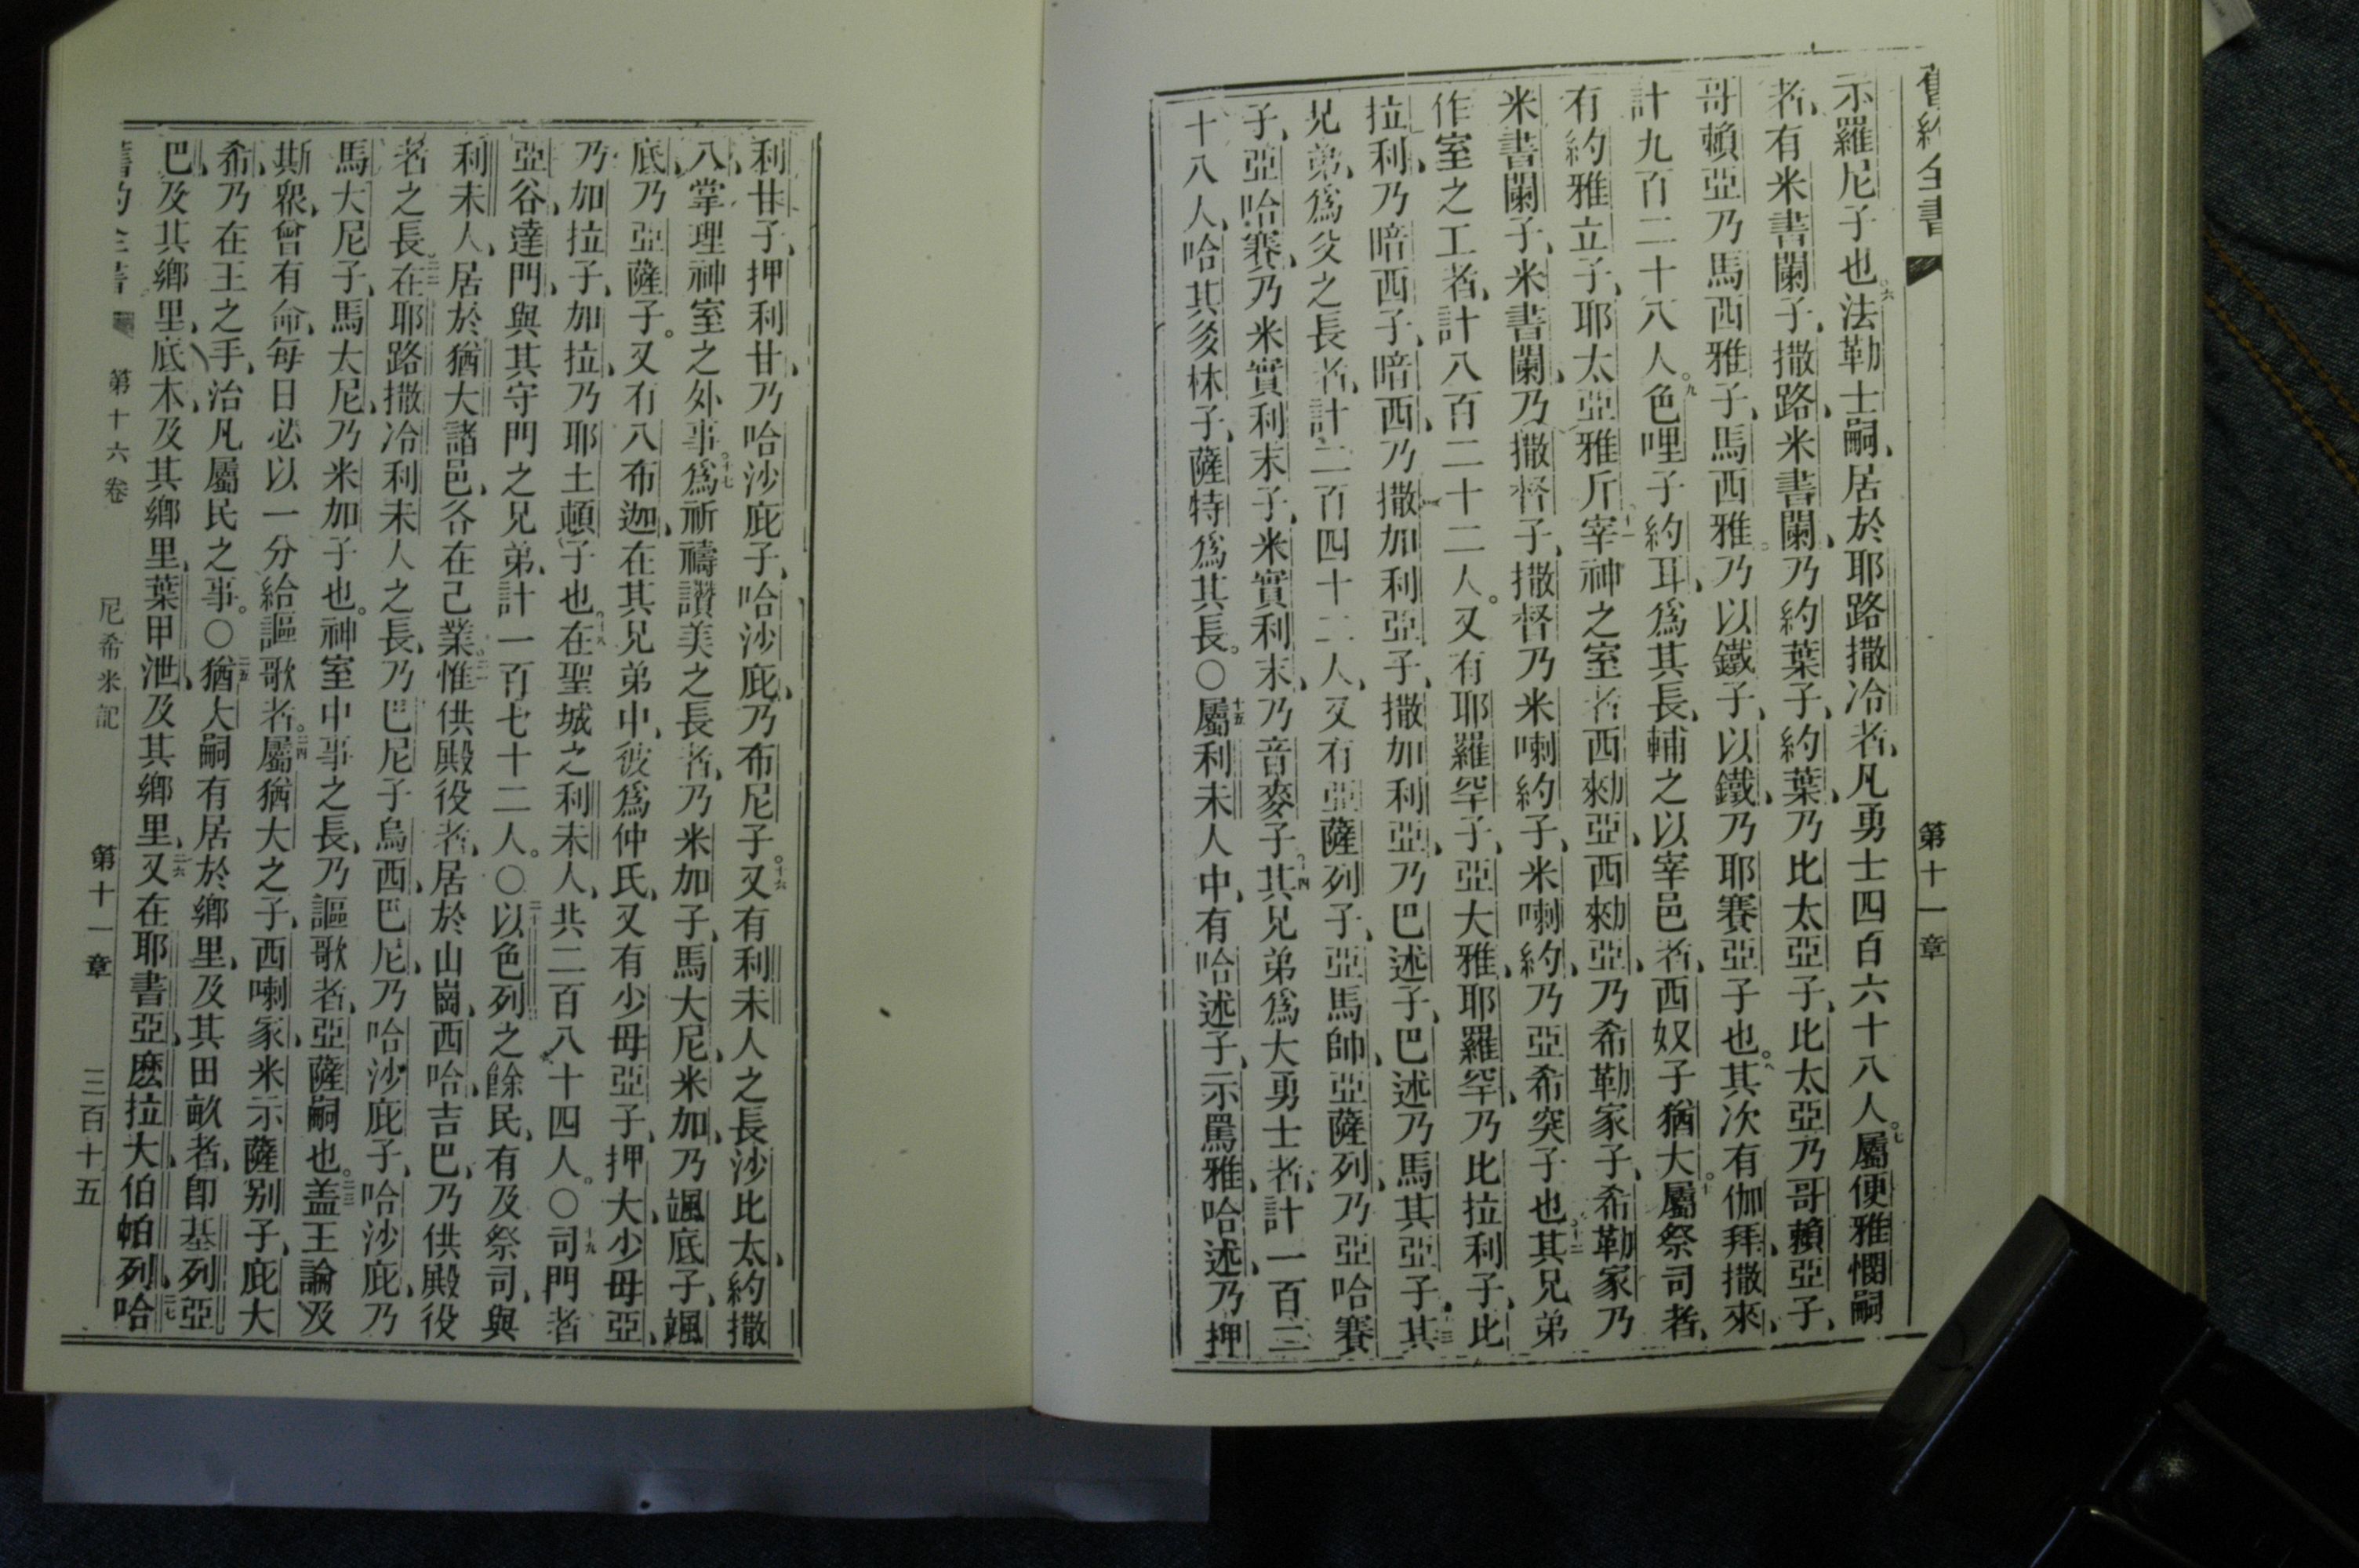 舊約全書 第十一章
示羅尼子也六法勒士嗣、居於耶路撒冷者、凡勇士四百六十八人。七屬便雅憫嗣
者、有米書闌子、撒路、米書闌、乃約葉子、約葉、乃比太亞子、比太亞乃哥賴亞子、
哥賴亞乃馬西雅子、馬西雅。乃以鐵子、以鐵、乃耶賽亞子也。八其次有伽拜、撒來、
計九百二十八人。九色哩子約耳、爲其長、輔之以宰邑者、西奴子猶大。十屬祭司者、
有約雅立子、耶太亞雅斤十一宰神之室者西勑亞、西勑亞、乃希勒家子、希勒家乃
米書闌子、米書闌、乃撒督子、撒督乃米喇約子、米喇約、乃亞希突子也。十二其兄弟
作室之工者、計八百二十二人。又有耶羅罕子、亞大雅、耶羅罕、乃比拉利子、比
拉利、乃暗西子、暗西、乃撒加利亞子、撒加利亞、乃巴述子、巴述乃馬其亞子、十三其
兄弟、爲父之長者、計二百四十二人、又有亞薩列子、亞馬帥、亞薩列、乃亞哈賽
子、亞哈賽、乃米實利末子、米實利末、乃音麥子、十四其兄弟爲大勇士者、計一百二
十八人、哈其多林子、薩特爲其長。〇十五屬利未人中、有哈述子、示罵雅、哈述、乃押
利甘子、押利甘、乃哈沙庇子、哈沙庇、乃布尼子。十六又有利未人之長沙比太、約撒
八、掌理神室之外事。十七爲祈禱讚美之長者、乃米加子、馬大尼、米加、乃颯底子、颯
底、乃亞薩子。又有八布迦、在其兄弟中、彼爲仲氏、又有少母亞子、押大、少母亞、
乃加拉子、加拉、乃耶土頓子也。十八在聖城之利未人、共二百八十四人。〇十九司門者
亞谷、達門、與其守門之兄弟、計一百七十二人。〇二十以色列之餘民、有及祭司、與
利未人、居於猶大諸邑、各在己業。二一惟供殿役者、居於山崗、西哈、吉巴、乃供殿役
者之長。二二在耶路撒冷利未人之長、乃巴尼子烏西、巴尼、乃哈沙庇子、哈沙庇、乃
馬大尼子、馬太尼、乃米加子也。神室中事之長、乃謳歌者、亞薩嗣也。二三盖王諭及
斯衆、曾有命、每日必以一分給謳歌者。二四屬猶大之子、西喇家、米示薩别子、庇大
希、乃在王之手、治凡屬民之事。〇二五猶大嗣有居於鄉里、及其田畝者、卽基列亞
巴、及其鄉里、底木、及其鄉里、葉甲泄、及其鄉里、二六又在耶書亞、麽拉大、伯帕列、二七哈
第十六卷 尼希米記 第十一章 三百十五